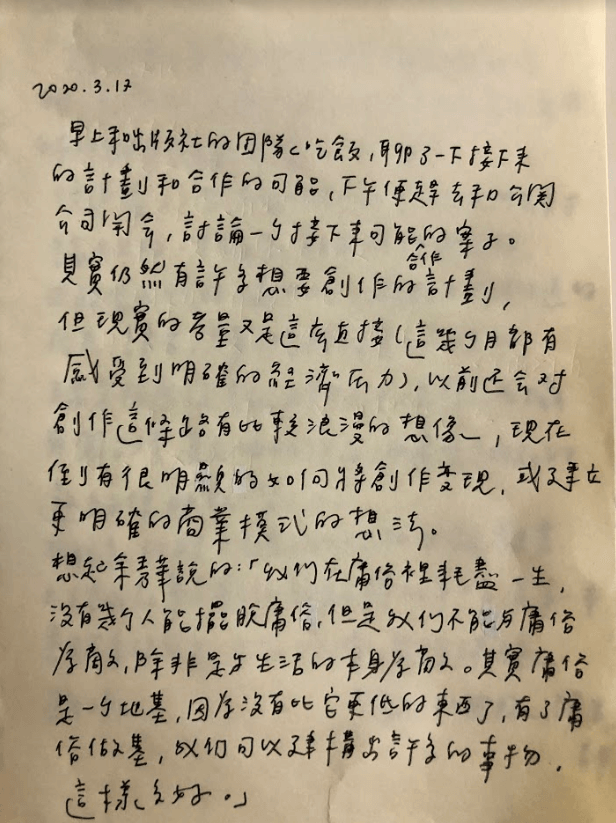 2020.3.17
早上和出版社的团隊吃飯，聊了一下接下來
的計劃和合作的可能，下午便趕去和公関
公司開会，討論一个接下來可能的案子。
其實仍然有許多想要創作的合作計劃，
但現實的考量又是這庅直接（這幾个月都有
感受到明確的経濟压力），以前还会对
創作這條路有比較浪漫的想像，現在
倒有很明顯的如何將創作变現，或建立
更明確的商業模式的想法。
想起余秀華說的：「我们在庸俗裡耗盡一生，
沒有幾个人能擺脫庸俗，但是我们不能与庸俗
為敵，除非是与生活的本身為敵。其實庸俗
是一个地基，因為沒有比它更低的東西了，有了庸
俗做基，我们可以建構出許多的事物，
這樣多好。」